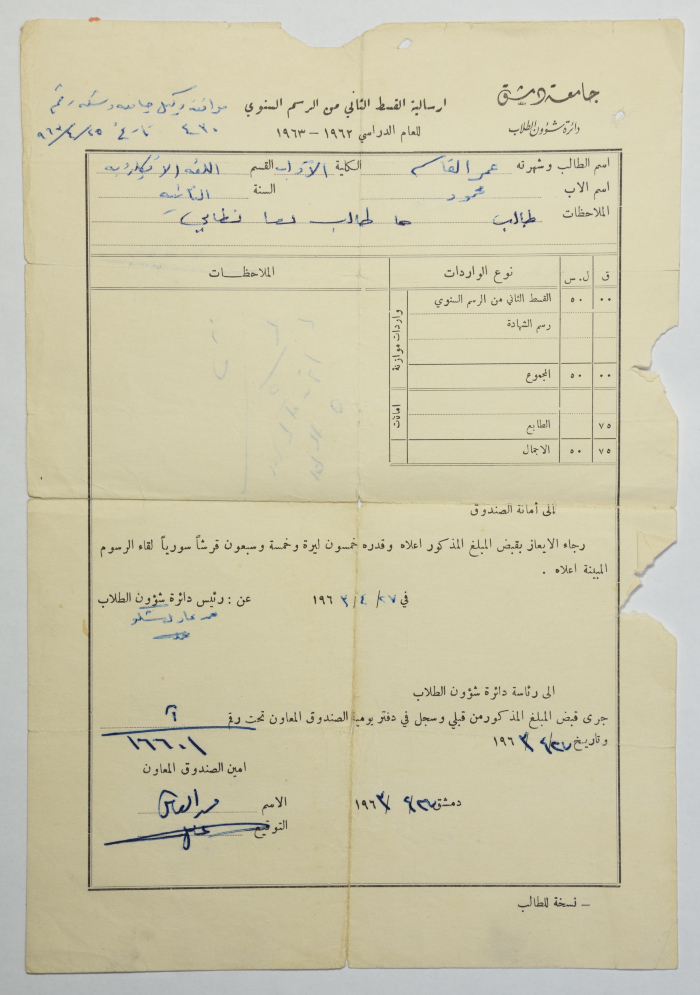 جامعة دمشق
دائرة شؤون الطلاب
ارسالية القسط الثاني من الرسم السنوي
للعام الدراسي ١٩٦٢ – ١٩٦٣
موافقة وكيل جامعة دمشق رقم
تاريخ ٩٦٣/٤/٢٥
اسم الطالب وشهرته عمر القاسم الكلية الآداب القسم اللغة الانكليزية
اسم الاب محمود السنة الثانية
الملاحظات طالب
ق ل.س نوع الواردات الملاحظات
واردات موازنة
٠٠ ٥٠ القسط الثاني من الرسم السنوي
رسم الشهادة
٠٠ ٥٠ المجموع
امانات
٧٥ الطابع
٧٥ ٥٠ الاجمال
الى أمانة الصندوق
رجاء الايعاز بقبض المبلغ المذكور اعلاه وقدره خمسون ليرة وخمسة وسبعون قرشاً سورياً لقاء الرسوم
المبينة اعلاه .
في ٢٧/٤/١٩٦٣ عن : رئيس دائرة شؤون الطلاب
الى رئاسة دائرة شؤون الطلاب
جرى قبض المبلغ المذكور من قبلي وسجل في دفتر يومية الصندوق المعاون تحت رقم آ
١٦٦٠١
وتاريخ ٢٧/٤/١٩٦٣
امين الصندوق المعاون
دمشق ٢٧/٤/١٩٦٣ الاسم
التوقيع
– نسخة للطالب